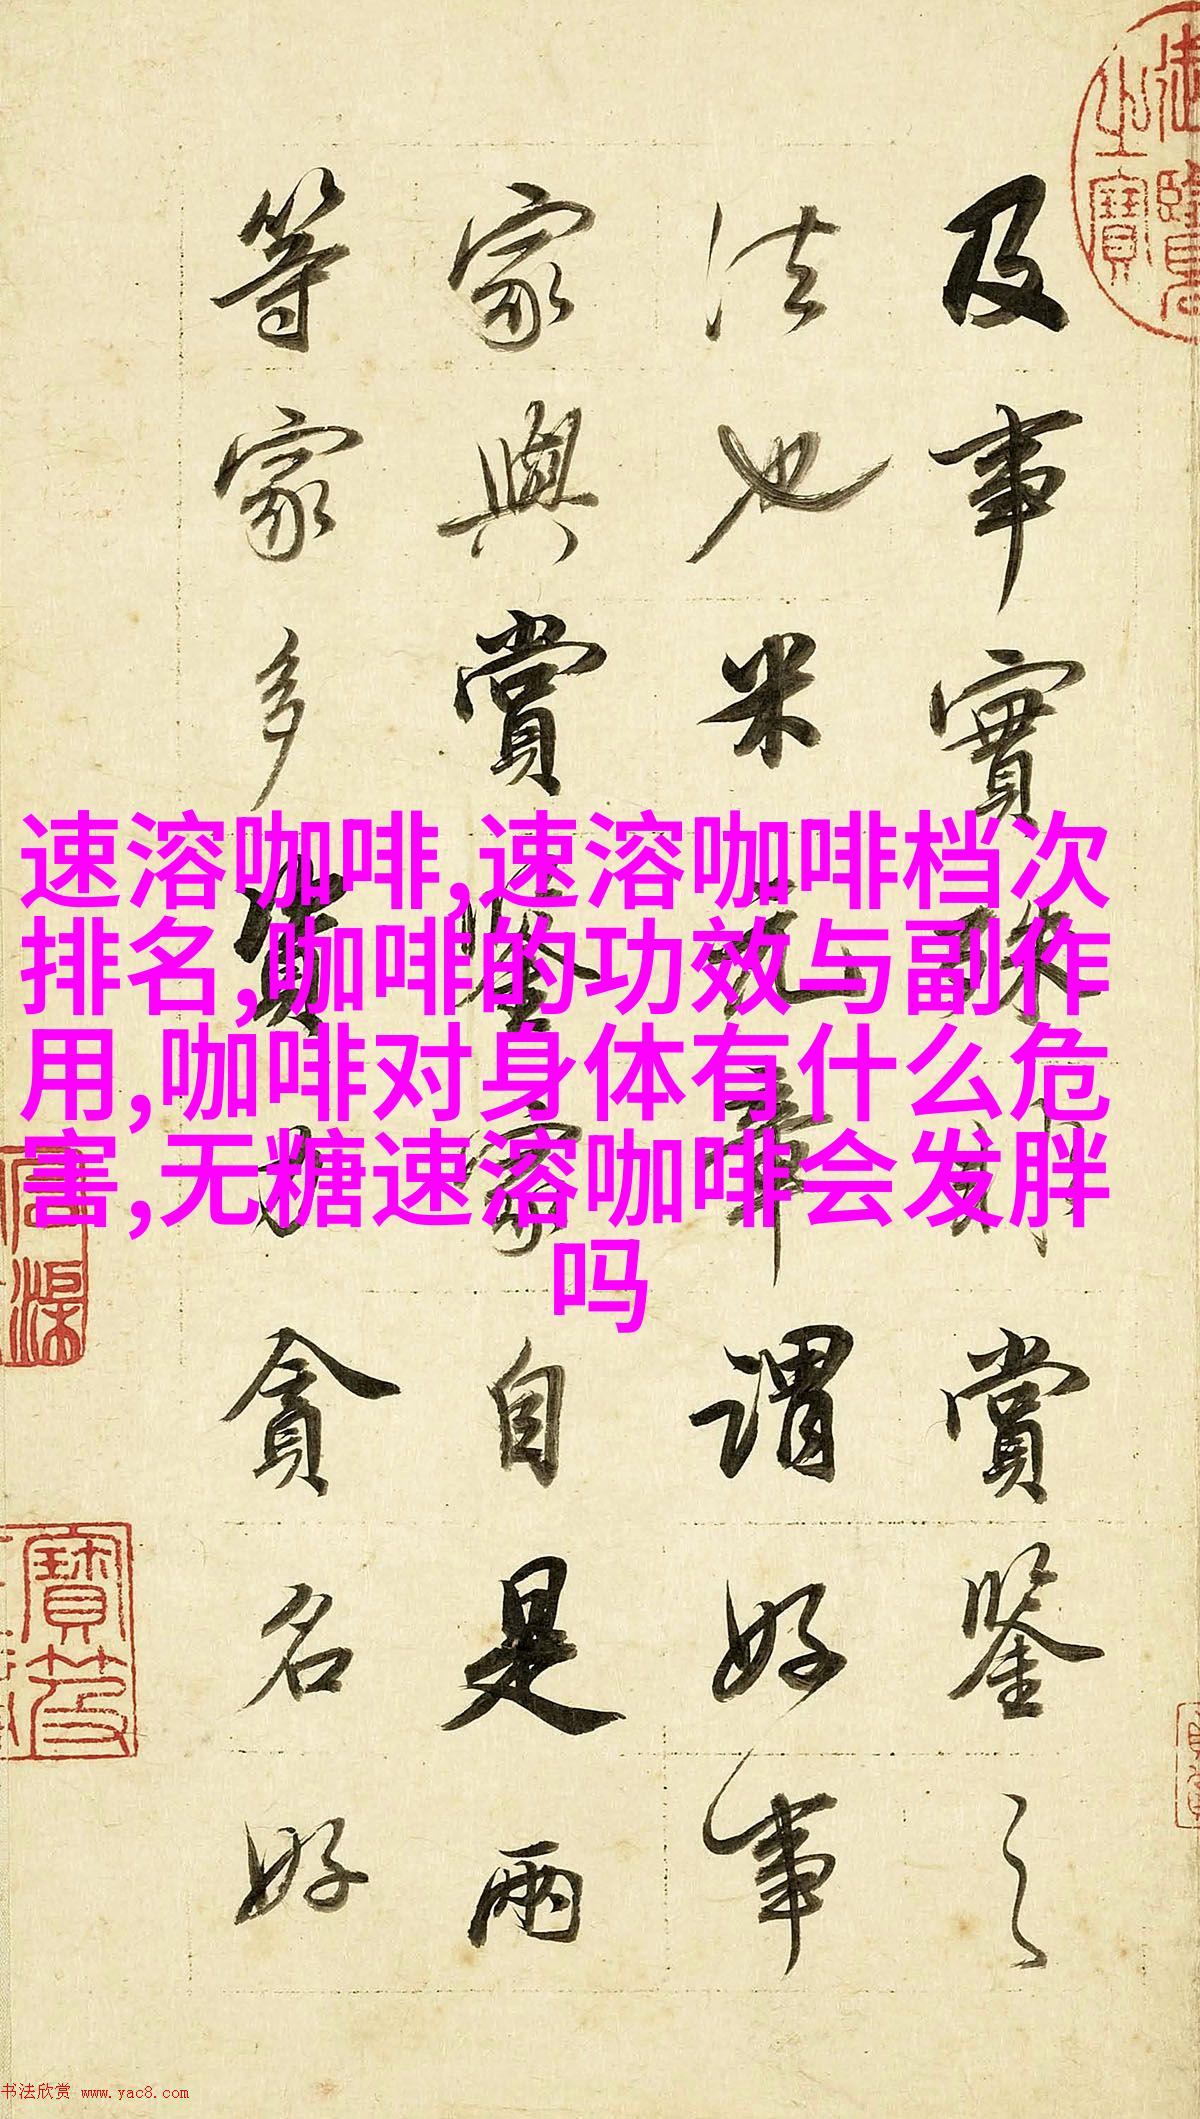 速溶咖啡,速溶咖啡档次
排名,咖啡的功效与副作
用,咖啡对身体有什么危
害,无糖速溶咖啡会发胖
吗
及事實 賞鑒之
法也米 謂好事
家與賞鑒家自是兩
等家多資力貪名好
書法欣赏 www.yac8.com